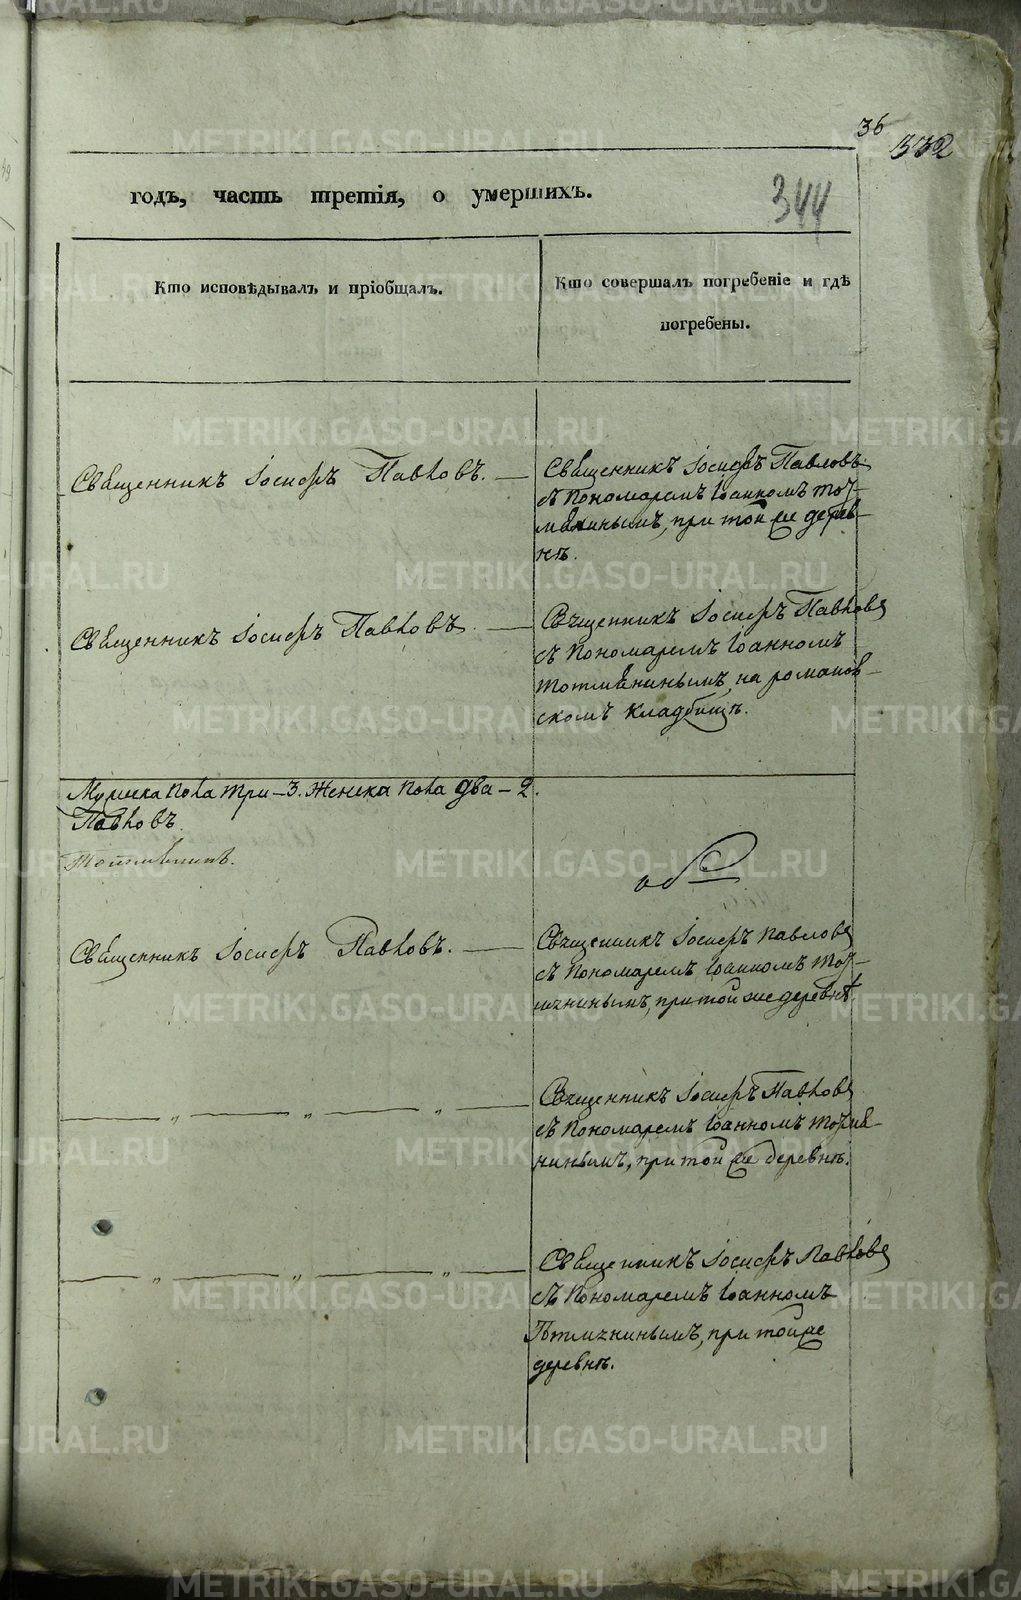 36
332
344
годъ, часть третія, о умершихъ.
Кто исповѣдывалъ и пріобщалъ.
Кто совершалъ погребеніе и гдѣ
погребены.
Священникъ Іосифъ Павловъ. —
Священникъ Іосифъ Павловъ
съ Пономаремъ Іоанномъ Тот-
мянинымъ, при той же дерев-
нѣ.
Священникъ Іосифъ Павловъ. —
Священникъ Іосифъ Павловъ
съ Пономаремъ Іоанномъ
Тотмянинымъ, на романов-
скомъ кладбищѣ.
Мужеска пола три – 3. Женска пола два – 2.
Павловъ.
Тотмянинъ.
Священникъ Іосифъ Павловъ. —
Священникъ Іосифъ Павловъ
съ Пономаремъ Іоанномъ Тот-
мянинымъ, при той же деревнѣ.
— „ — „ — „ —
Священникъ Іосифъ Павловъ
съ Пономаремъ Іоанномъ Тотмя-
нинымъ, при той же деревнѣ.
— „ — „ — „ —
Священникъ Іосифъ Павловъ
съ Пономаремъ Іоанномъ
Тотмянинымъ, при той же
деревнѣ.
METRIKI.GASO-URAL.RU